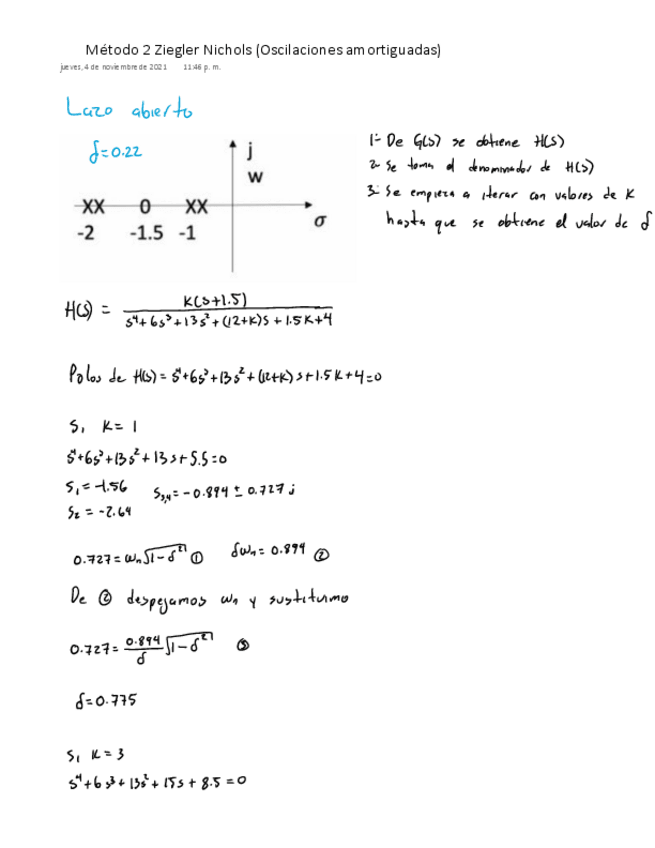 Método 2 Ziegler Nichols (Oscilaciones amortiguadas)
jueves, 4 de noviembre de 2021 11:46 p. m.
Lazo abierto
δ=0.22
j
w
XX O XX
σ
-2 -1.5 -1
1- De G(s) se obtiene H(s)
2- Se toma el denominador de H(s)
3- Se empieza a iterar con valores de K
hasta que se obtiene el valor de δ
H(s) = K(s+1.5) / s⁴+6s³+13s²+(12+K)s+1.5K+4
Polos de H(s) = s⁴+6s³+13s²+(12+K)s+1.5K+4=0
Si K=1
s⁴+6s³+13s²+13s+5.5=0
S₁=-1.56 S₃,₄=-0.894 ± 0.727j
S₂=-2.64
0.727=ωₙ√1-δ² ① δωₙ=0.894 ②
De ② despejamos ωₙ y sustituimo
0.727= 0.894/δ √1-δ² ③
δ=0.775
Si K=3
s⁴+6s³+13s²+15s+8.5=0